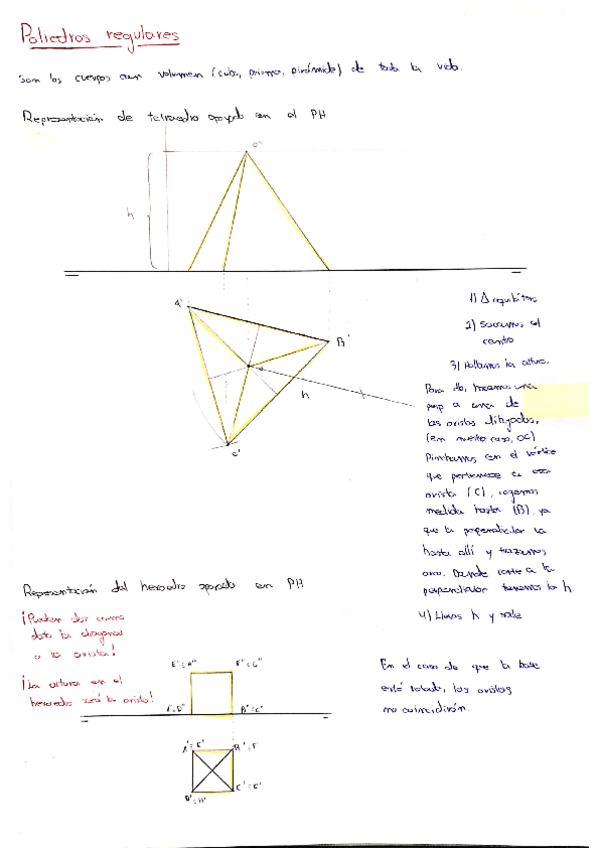 Poliedros regulares
Son los cuerpos con volumen (cubo, prisma, pirámide) de toda la vida.
Representación de tetraedro apoyado en el PH
O''
h
A'
B'
h
C'
1) Δ equilátero
2) Sacamos el
centro
3) Hallamos la altura.
Para ello, trazamos una
perp a una de
las aristas dibujadas,
(en nuestro caso, OC)
Pinchamos en el vértice
que pertenece a esa
arista (C), cogemos
medida hasta (B), ya
que la perpendicular va
hasta allí y trazamos
arco. Donde corte a la
perpendicular tenemos la h.
4) Llevas h y sale
Representación del hexaedro apoyado en PH
¡Pueden dar como
dato la diagonal
o la arista!
¡La altura en el
hexaedro será la arista!
B''≡C''
C'≡G'
D'≡H'
En el caso de que la base
esté rotada, las aristas
no coincidirán.